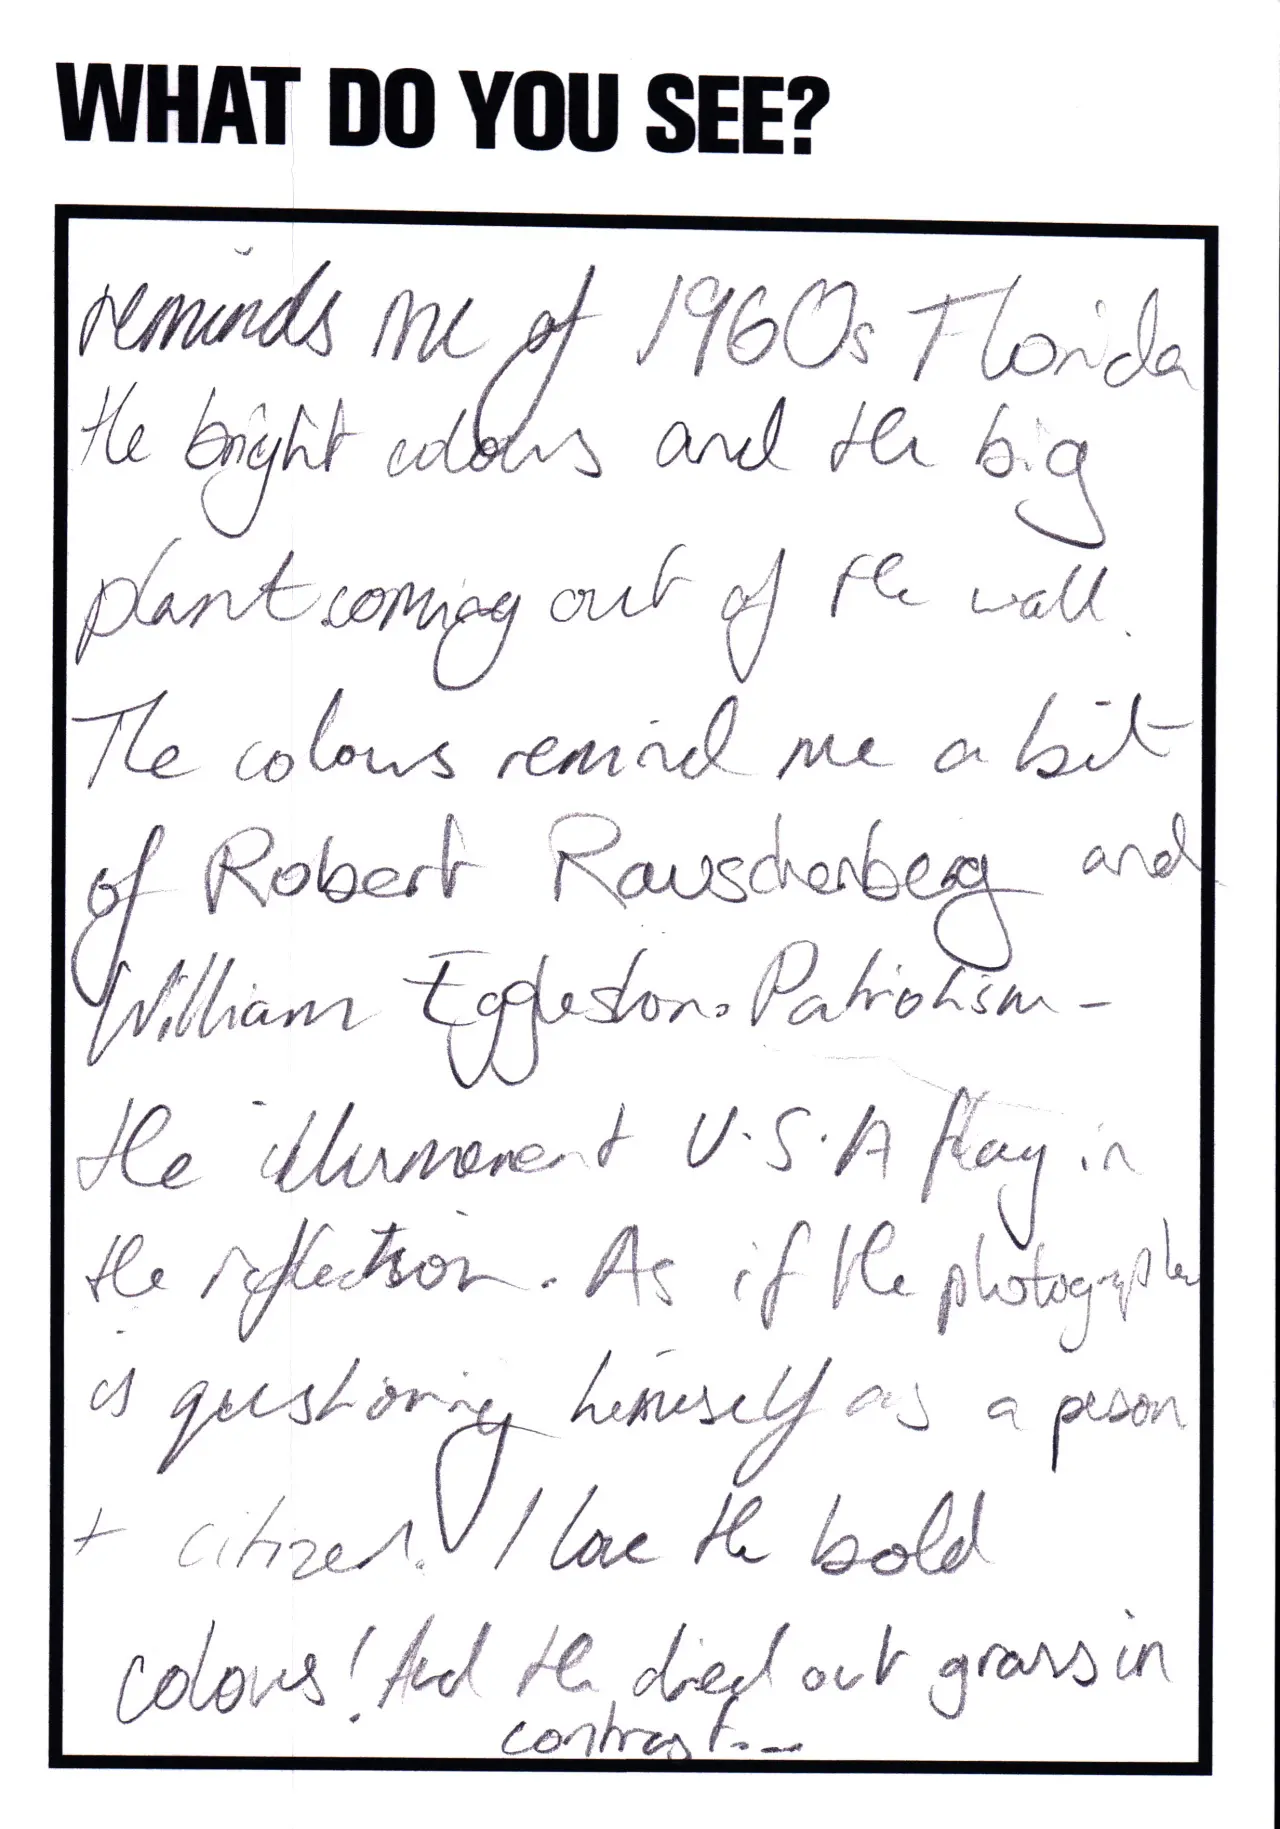 WHAT DO YOU SEE?
reminds me of 1960s Florida
the bright colours and the big
plant coming out of the wall.
The colours remind me a bit
of Robert Rauschenberg and
William Eggleston. Patriotism -
the U.S.A flag in
the reflection. As if the photographer
is questioning himself as a person
+ citizen. I love the bold
colours! And the dried out grass in
contrast...